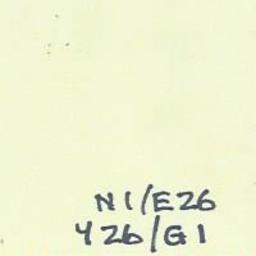 N1/E26
Y26/G1